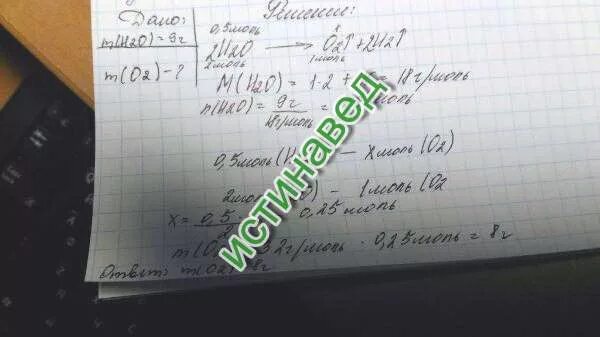 Дано:
Решение:
m(H2O)=9г
m(O2)-?
0,5моль x
2H2O → O2↑ + 2H2↑
2моль 1моль
M(H2O) = 1·2 + = 18г/моль
n(H2O) = 9г / 18г/моль = моль
0,5моль (H — x моль (O2)
2мо — 1моль (O2
x = 0,5 / 2 0,25 моль
m(O 2г/моль · 0,25моль = 8г
Ответ: m(O2) 8г
ИСТИНАВЕД